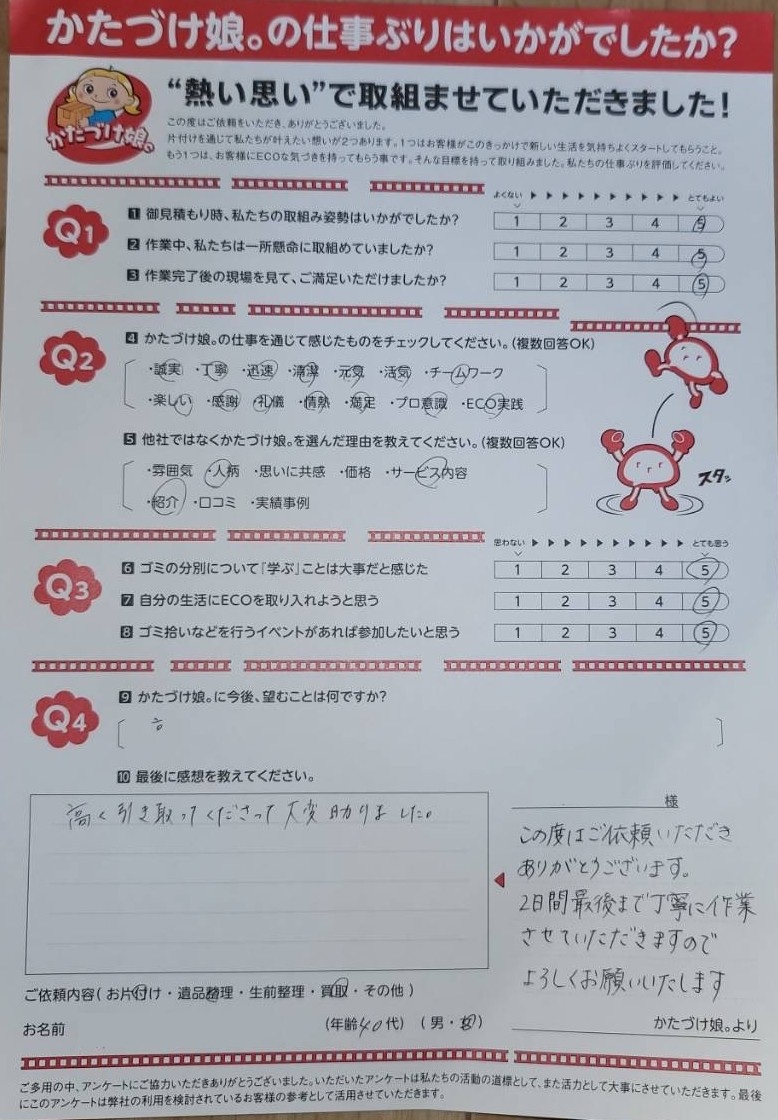 かたづけ娘。の仕事ぶりはいかがでしたか?
かたづけ娘。
“熱い思い”で取組ませていただきました!
この度はご依頼をいただき、ありがとうございました。
片付けを通じて私たちが叶えたい想いが2つあります。1つはお客様がこのきっかけで新しい生活を気持ちよくスタートしてもらうこと。
もう1つは、お客様にECOな気づきを持ってもらう事です。そんな目標を持って取り組みました。私たちの仕事ぶりを評価してください。
よくない ▶ ▶ ▶ ▶ ▶ ▶ ▶ ▶ ▶ ▶ とてもよい
Q1
1 御見積もり時、私たちの取組み姿勢はいかがでしたか? 1 2 3 4 5
2 作業中、私たちは一所懸命に取組めていましたか? 1 2 3 4 5
3 作業完了後の現場を見て、ご満足いただけましたか? 1 2 3 4 5
Q2
4 かたづけ娘。の仕事を通じて感じたものをチェックしてください。(複数回答OK)
・誠実 ・丁寧 ・迅速 ・清潔 ・元気 ・活気 ・チームワーク
・楽しい ・感謝 ・礼儀 ・情熱 ・満足 ・プロ意識 ・ECO実践
5 他社ではなくかたづけ娘。を選んだ理由を教えてください。(複数回答OK)
・雰囲気 ・人柄 ・思いに共感 ・価格 ・サービス内容
・紹介 ・口コミ ・実績事例
スタッ
思わない ▶ ▶ ▶ ▶ ▶ ▶ ▶ ▶ ▶ ▶ とても思う
Q3
6 ゴミの分別について『学ぶ』ことは大事だと感じた 1 2 3 4 5
7 自分の生活にECOを取り入れようと思う 1 2 3 4 5
8 ゴミ拾いなどを行うイベントがあれば参加したいと思う 1 2 3 4 5
Q4
9 かたづけ娘。に今後、望むことは何ですか?
10 最後に感想を教えてください。
高く引き取ってくださって大変助りました。
様
この度はご依頼いただき
ありがとうございます。
2日間最後まで丁寧に作業
させていただきますので
よろしくお願いいたします
かたづけ娘。より
ご依頼内容(お片付け・遺品整理・生前整理・買取・その他)
お名前 (年齢40代) (男・女)
ご多用の中、アンケートにご協力いただきありがとうございました。いただいたアンケートは私たちの活動の道標として、また活力として大事にさせていただきます。最後
にこのアンケートは弊社の利用を検討されているお客様の参考として活用させていただきます。